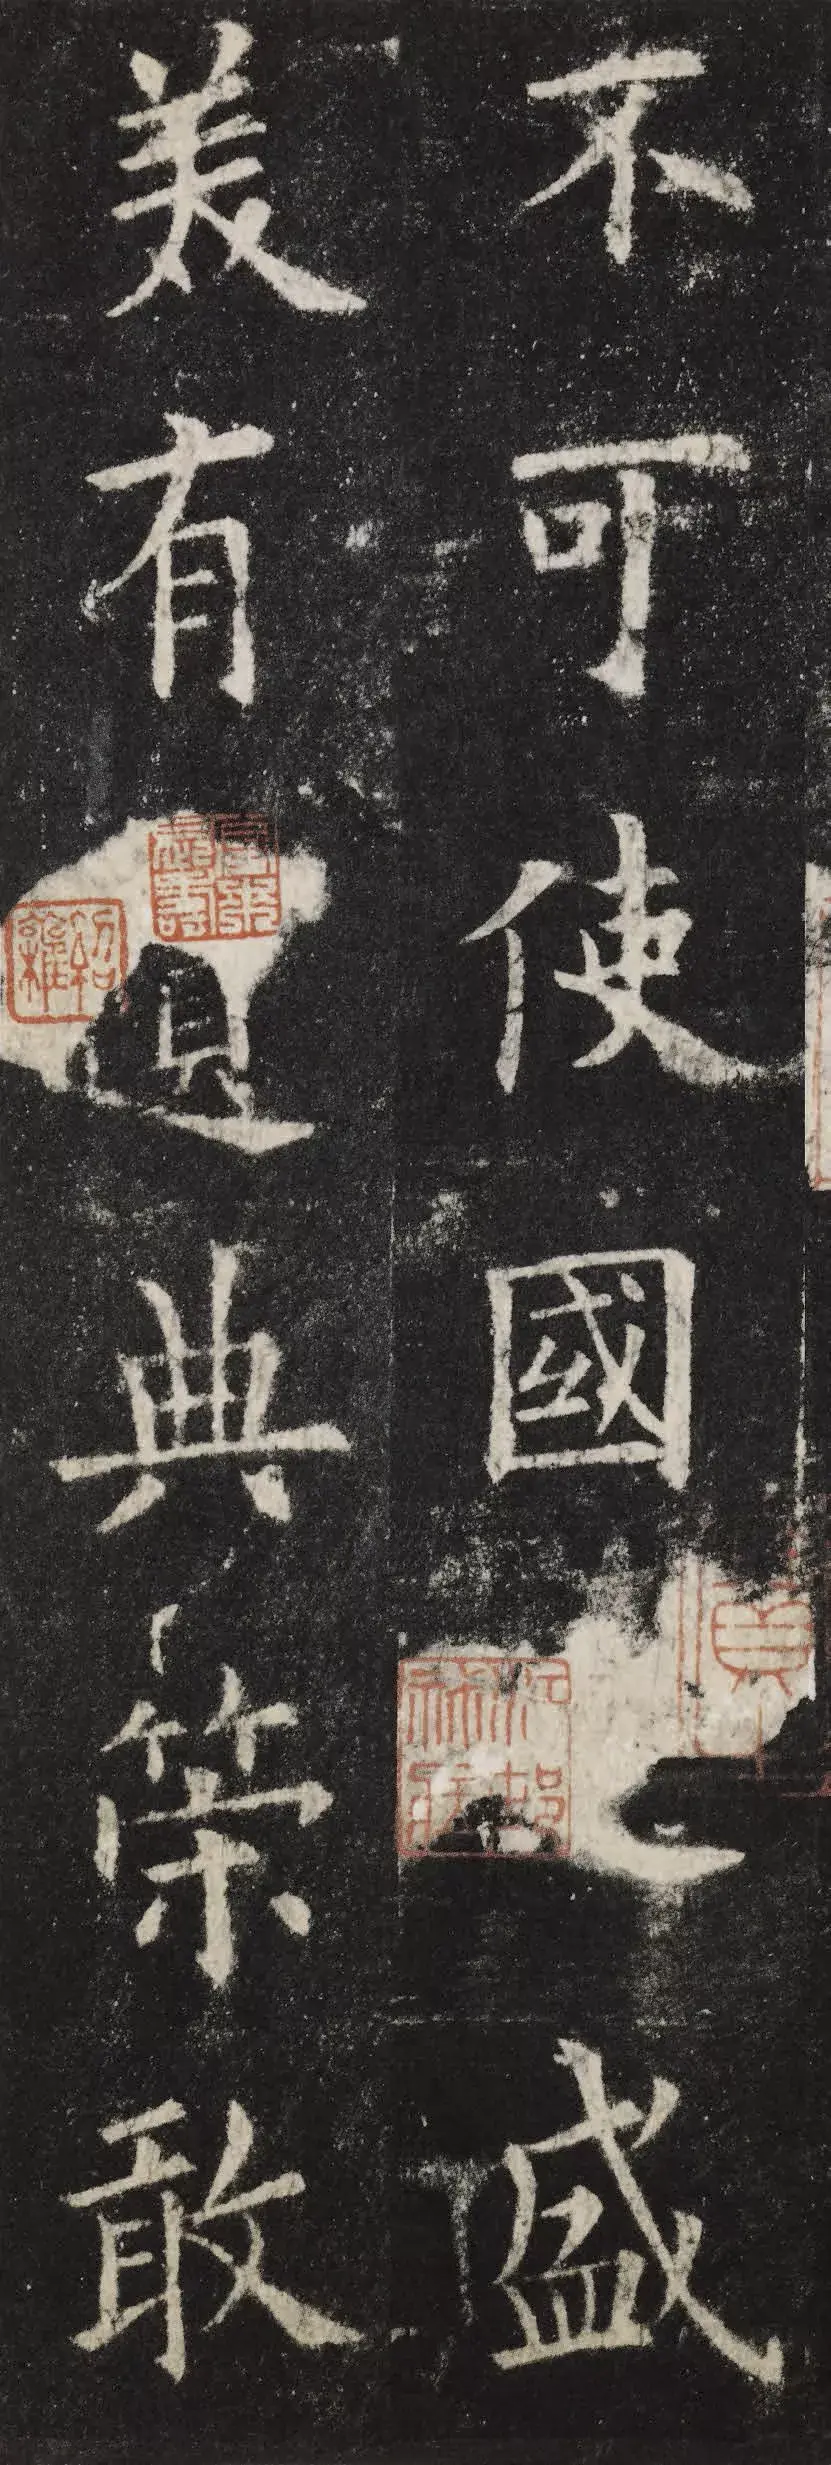 不可使國之盛
美有遺典策敢